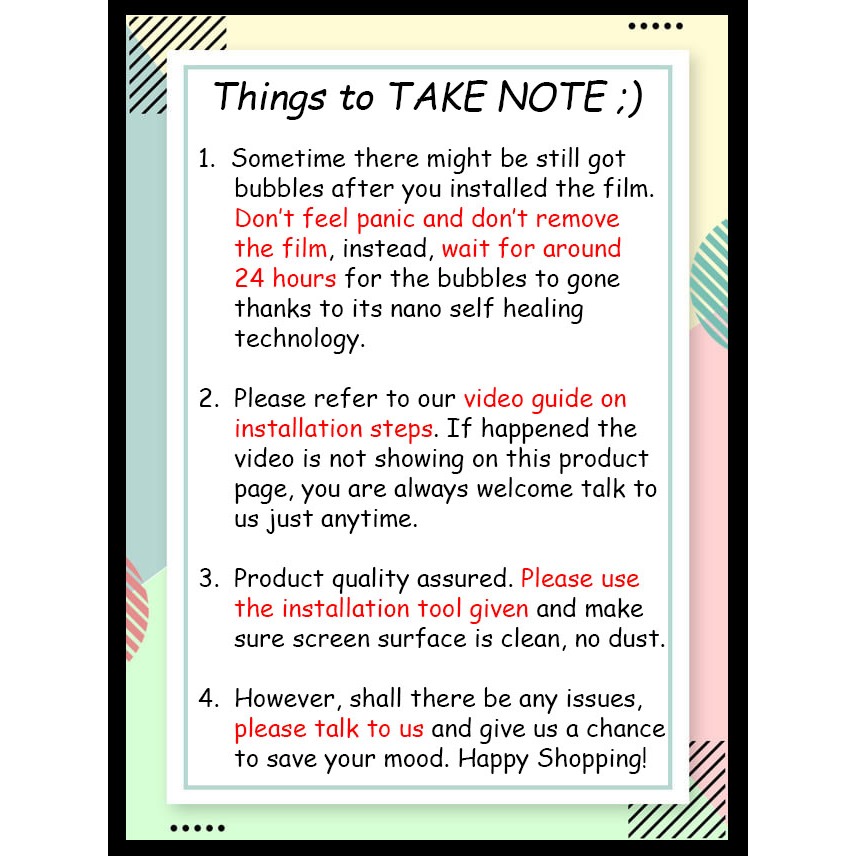 Things to TAKE NOTE ;)
1. Sometime there might be still got
bubbles after you installed the film.
Don't feel panic and don't remove
the film, instead, wait for around
24 hours for the bubbles to gone
thanks to its nano self healing
technology.
2. Please refer to our video guide on
installation steps. If happened the
video is not showing on this product
page, you are always welcome talk to
us just anytime.
3. Product quality assured. Please use
the installation tool given and make
sure screen surface is clean, no dust.
4. However, shall there be any issues,
please talk to us and give us a chance
to save your mood. Happy Shopping!